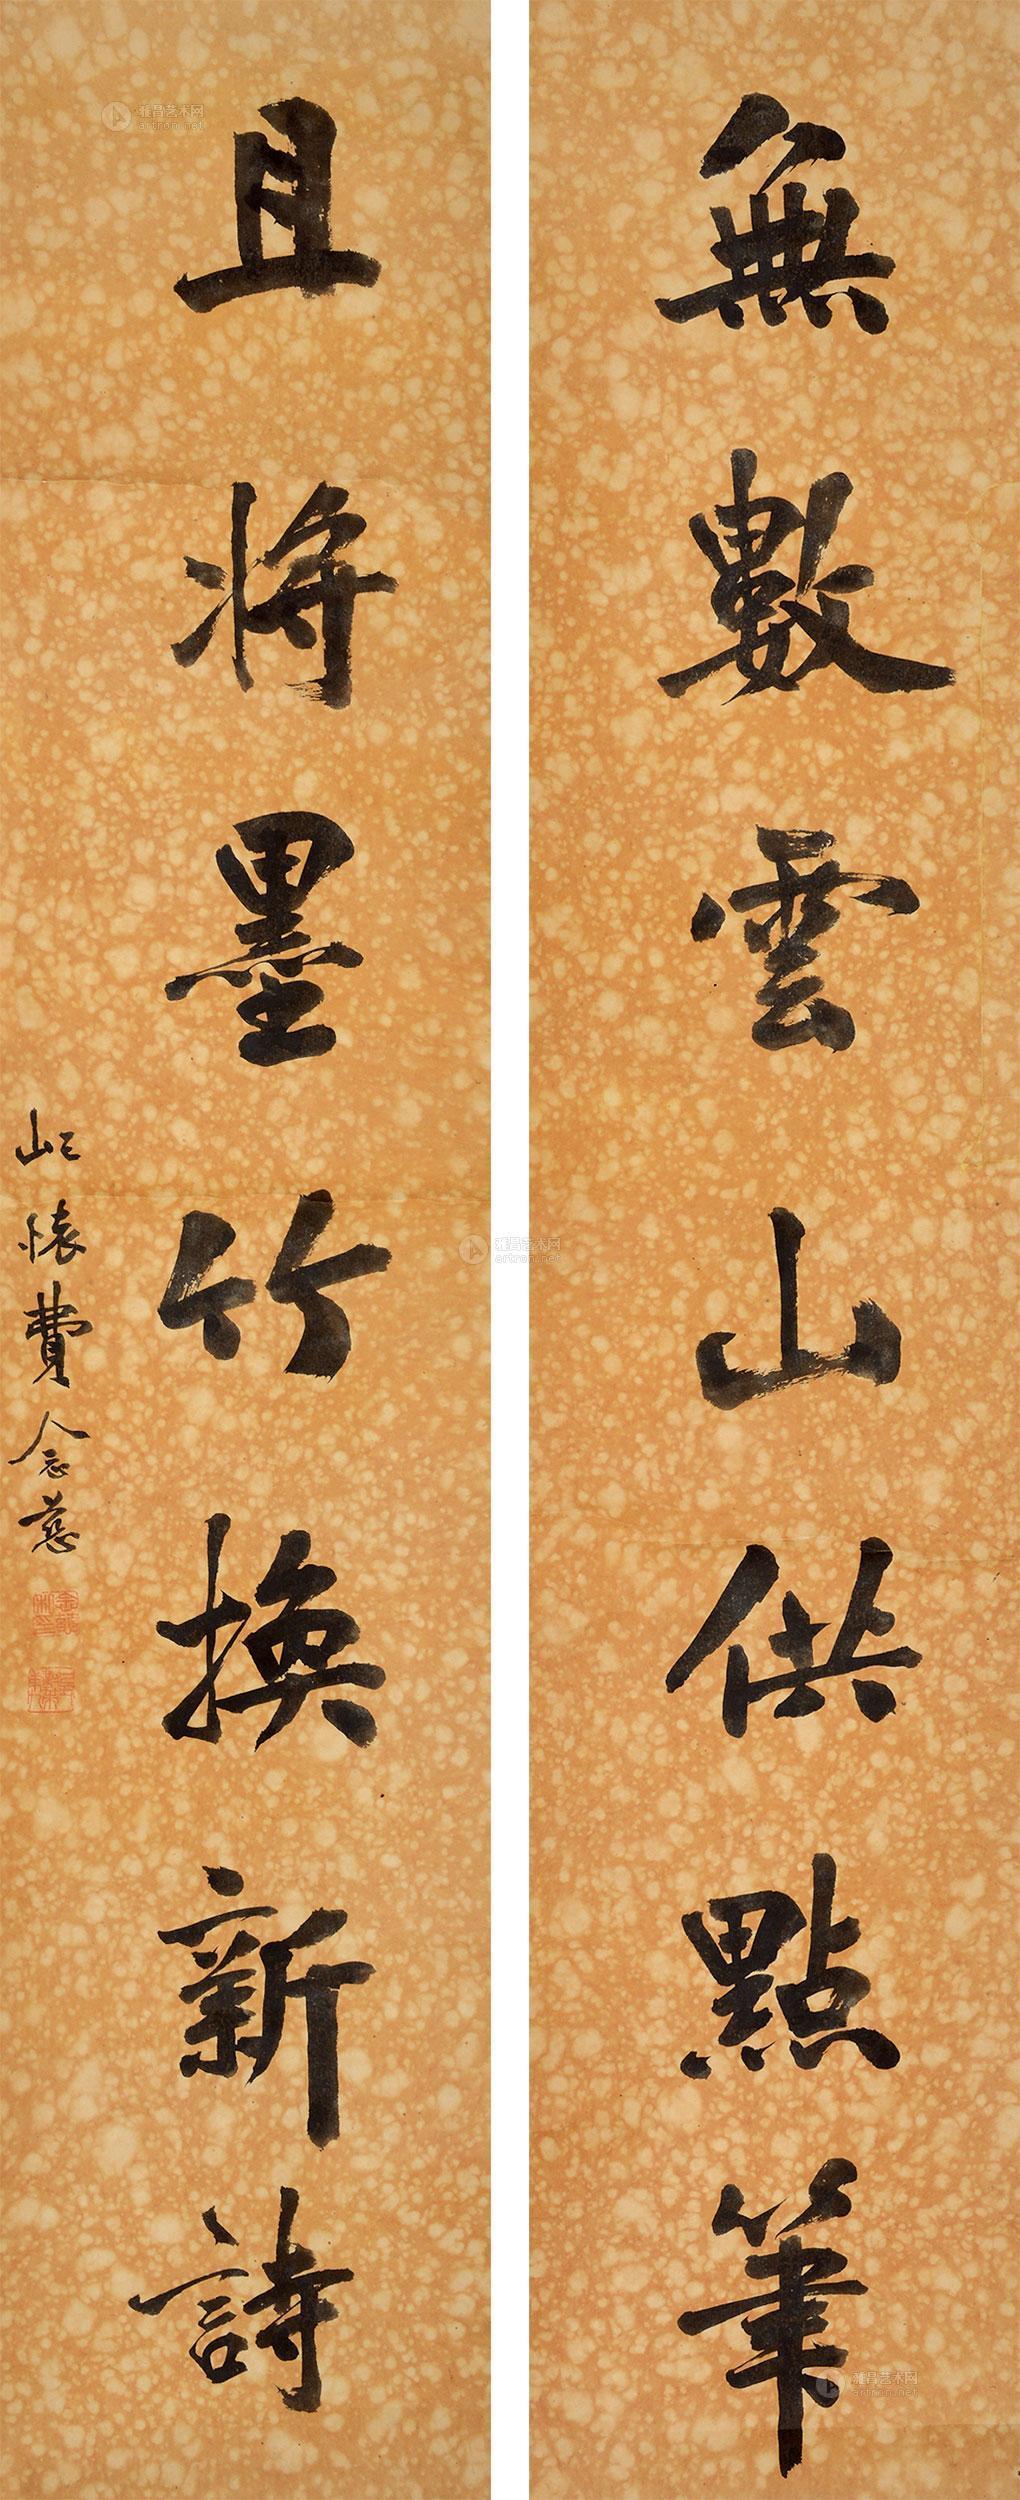 無數雲山供點筆
且將墨竹換新詩
屺懷費念慈
雅昌艺术网
artron.net
雅昌艺术网
artron.net
雅昌艺术网
artron.net